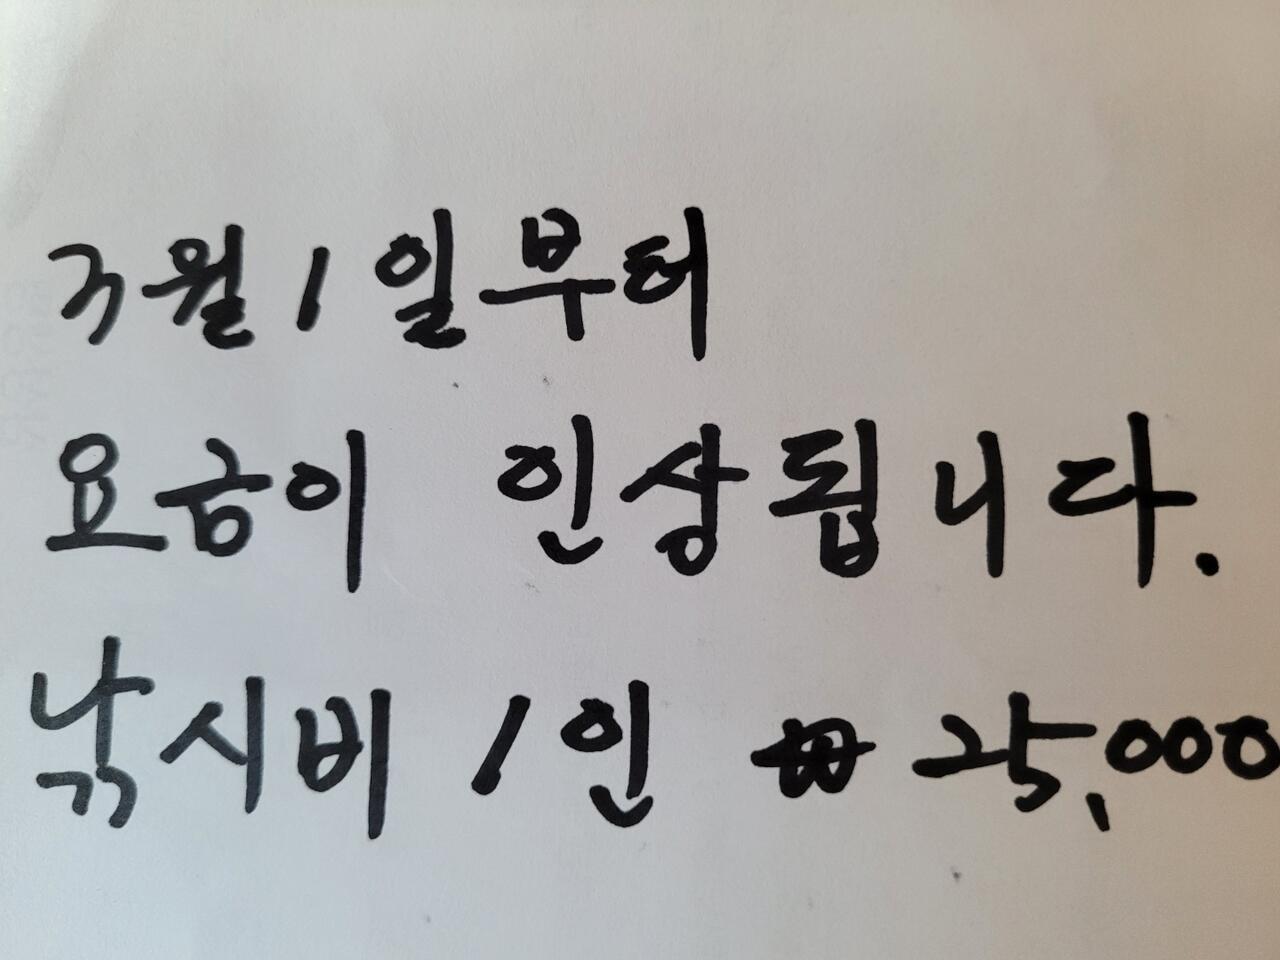 3월 1일부터
요금이 인상됩니다.
낚시비 1인 ₩ 25,000